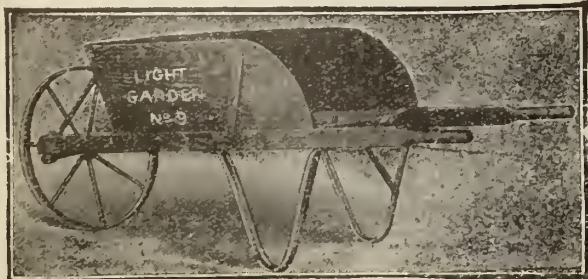 LIGHT
GARDEN
No 9